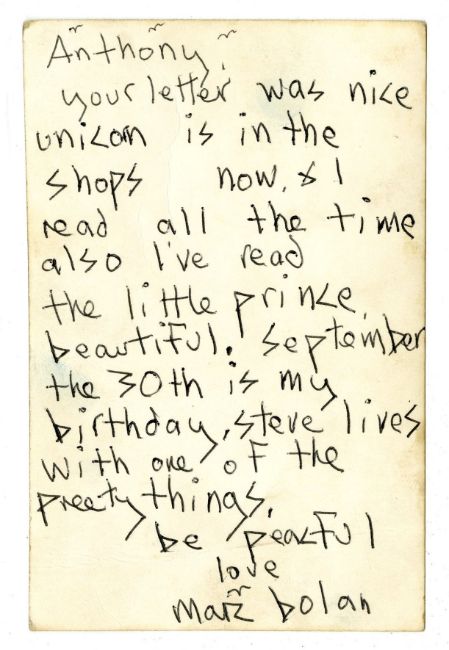 Anthony,
your letter was nice
unicorn is in the
shops now, & I
read all the time
also I've read
the little prince,
beautiful. September
the 30th is my
birthday, steve lives
with one of the
preety things,
be peacful
love
Marc bolan